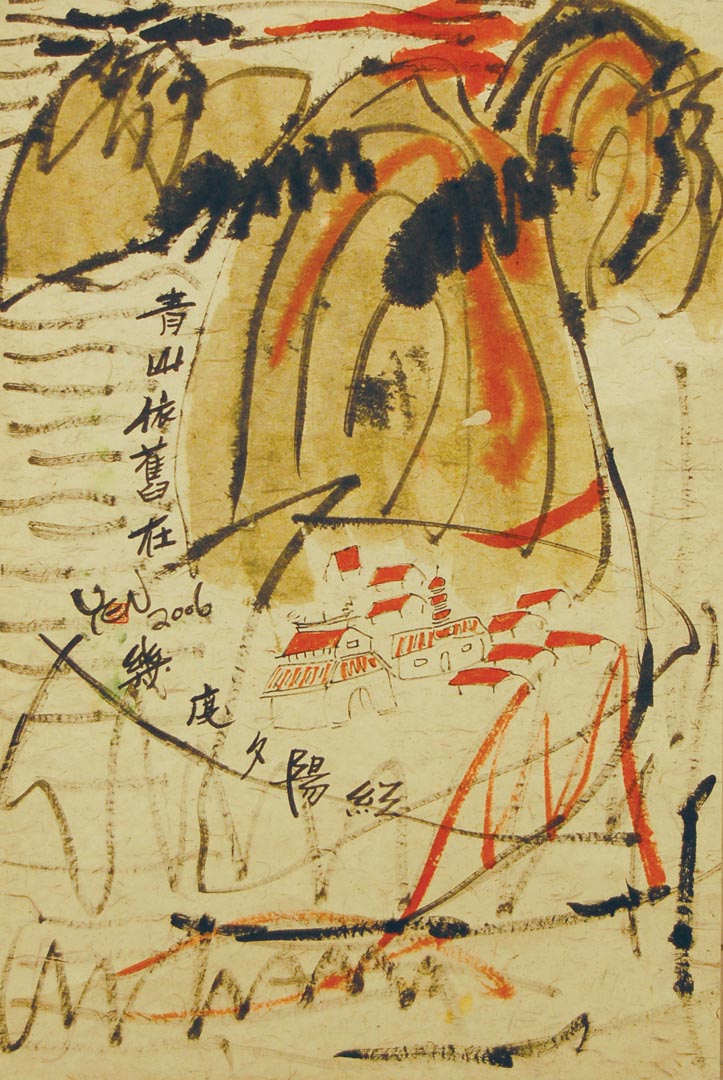 青山依舊在
YEN 2006
幾度夕陽紅